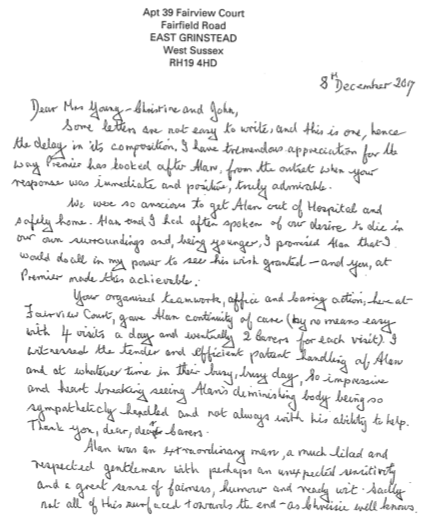 Apt 39 Fairview Court
Fairfield Road
EAST GRINSTEAD
West Sussex
RH19 4HD
8th December 2017
Dear Mrs Young - Christine and John,
Some letters are not easy to write, and this is one, hence
the delay in its composition. I have tremendous appreciation for the
way Premier has looked after Alan, from the outset when your
response was immediate and positive, truly admirable.
We were so anxious to get Alan out of Hospital and
safely home. Alan and I had often spoken of our desire to die in
our own surroundings and, being younger, I promised Alan that I
would do all in my power to see his wish granted - and you, at
Premier made this achievable.
Your organised teamwork, office and caring action, here at
Fairview Court, gave Alan continuity of care (by no means easy
with 4 visits a day and eventually 2 carers for each visit). I
witnessed the tender and efficient patient handling of Alan
and at whatever time in their busy, busy day, so impressive
and heart breaking seeing Alan's diminishing body being so
sympathetically handled and not always with his ability to help.
Thank you, dear, dear carers.
Alan was an extraordinary man, a much liked and
respected gentleman with perhaps an unexpected sensitivity
and a great sense of fairness, humour and ready wit. Sadly
not all of this surfaced towards the end - as Chrissie well knows.